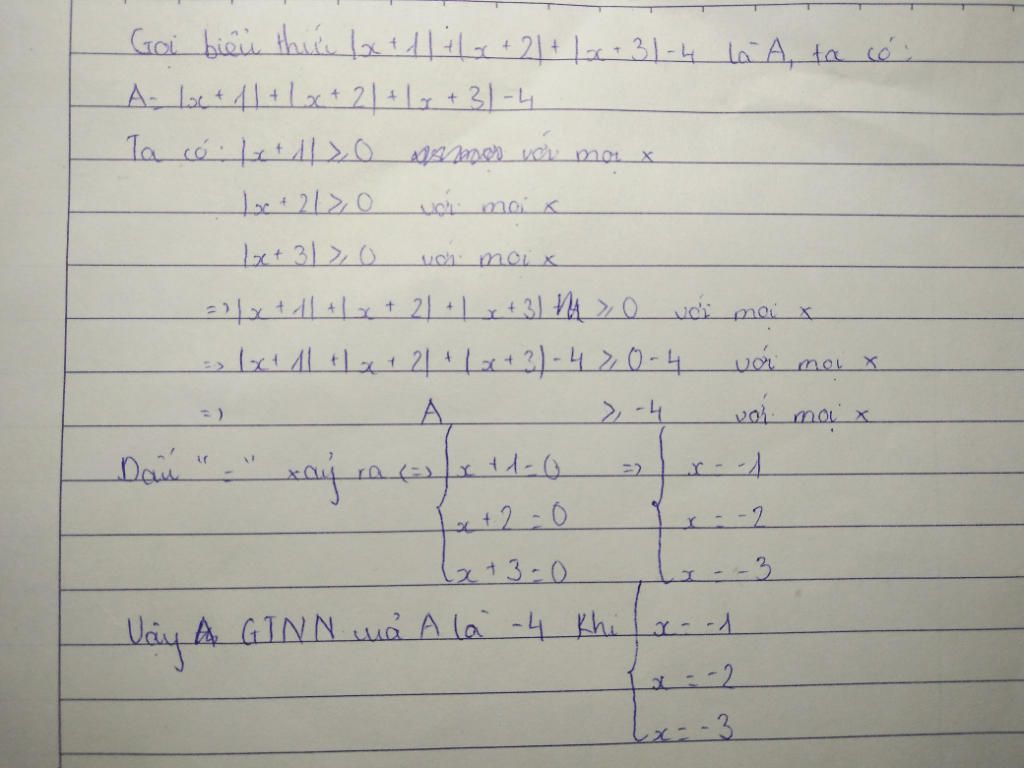 Gọi biểu thức |x+1|+|x+2|+|x+3|-4 là A, ta có:
A=|x+1|+|x+2|+|x+3|-4
Ta có: |x+1|≥0 với mọi x
|x+2|≥0 với mọi x
|x+3|≥0 với mọi x
=>|x+1|+|x+2|+|x+3| ≥0 với mọi x
=>|x+1|+|x+2|+|x+3|-4≥0-4 với mọi x
=> A ≥-4 với mọi x
Dấu "=" xảy ra <=> { x+1=0 => { x=-1
x+2=0 x=-2
x+3=0 x=-3
Vậy GTNN của A là -4 khi { x=-1
x=-2
x=-3